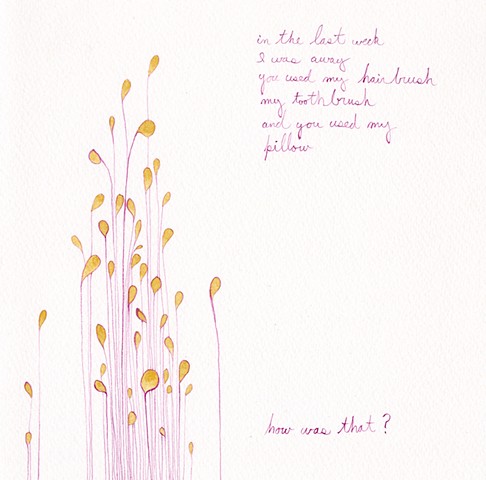 in the last week
I was away
you used my hairbrush
my toothbrush
and you used my
pillow
how was that?